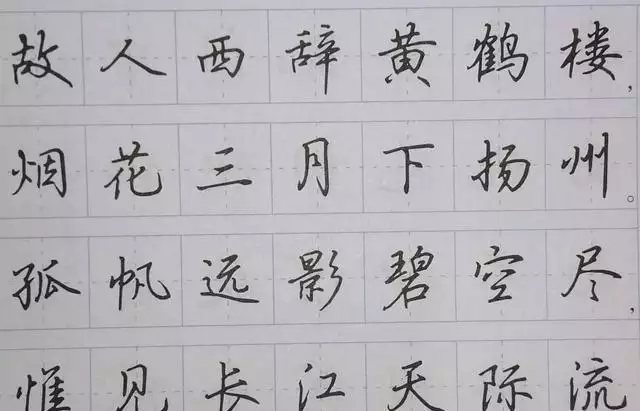 故人西辞黄鹤楼,
烟花三月下扬州。
孤帆远影碧空尽,
惟见长江天际流